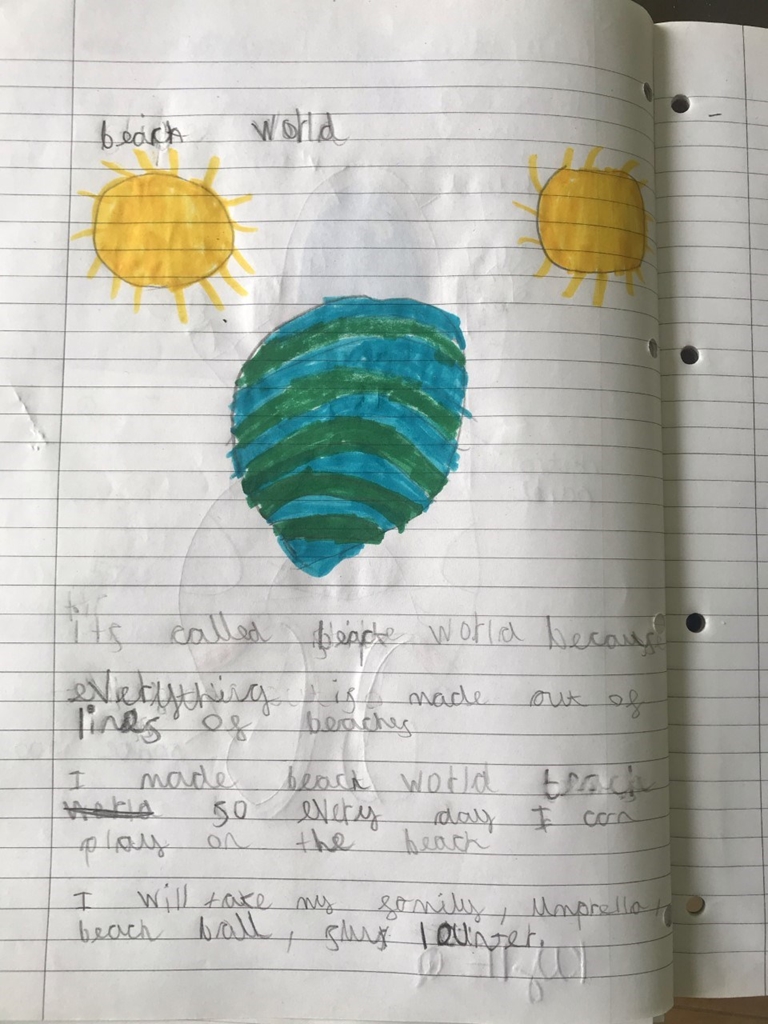 beach world
its called beach world because
everything is made out of
lines of beaches
I made beach world
so every day I can
play on the beach
I will take my family, umprella,
beach ball,